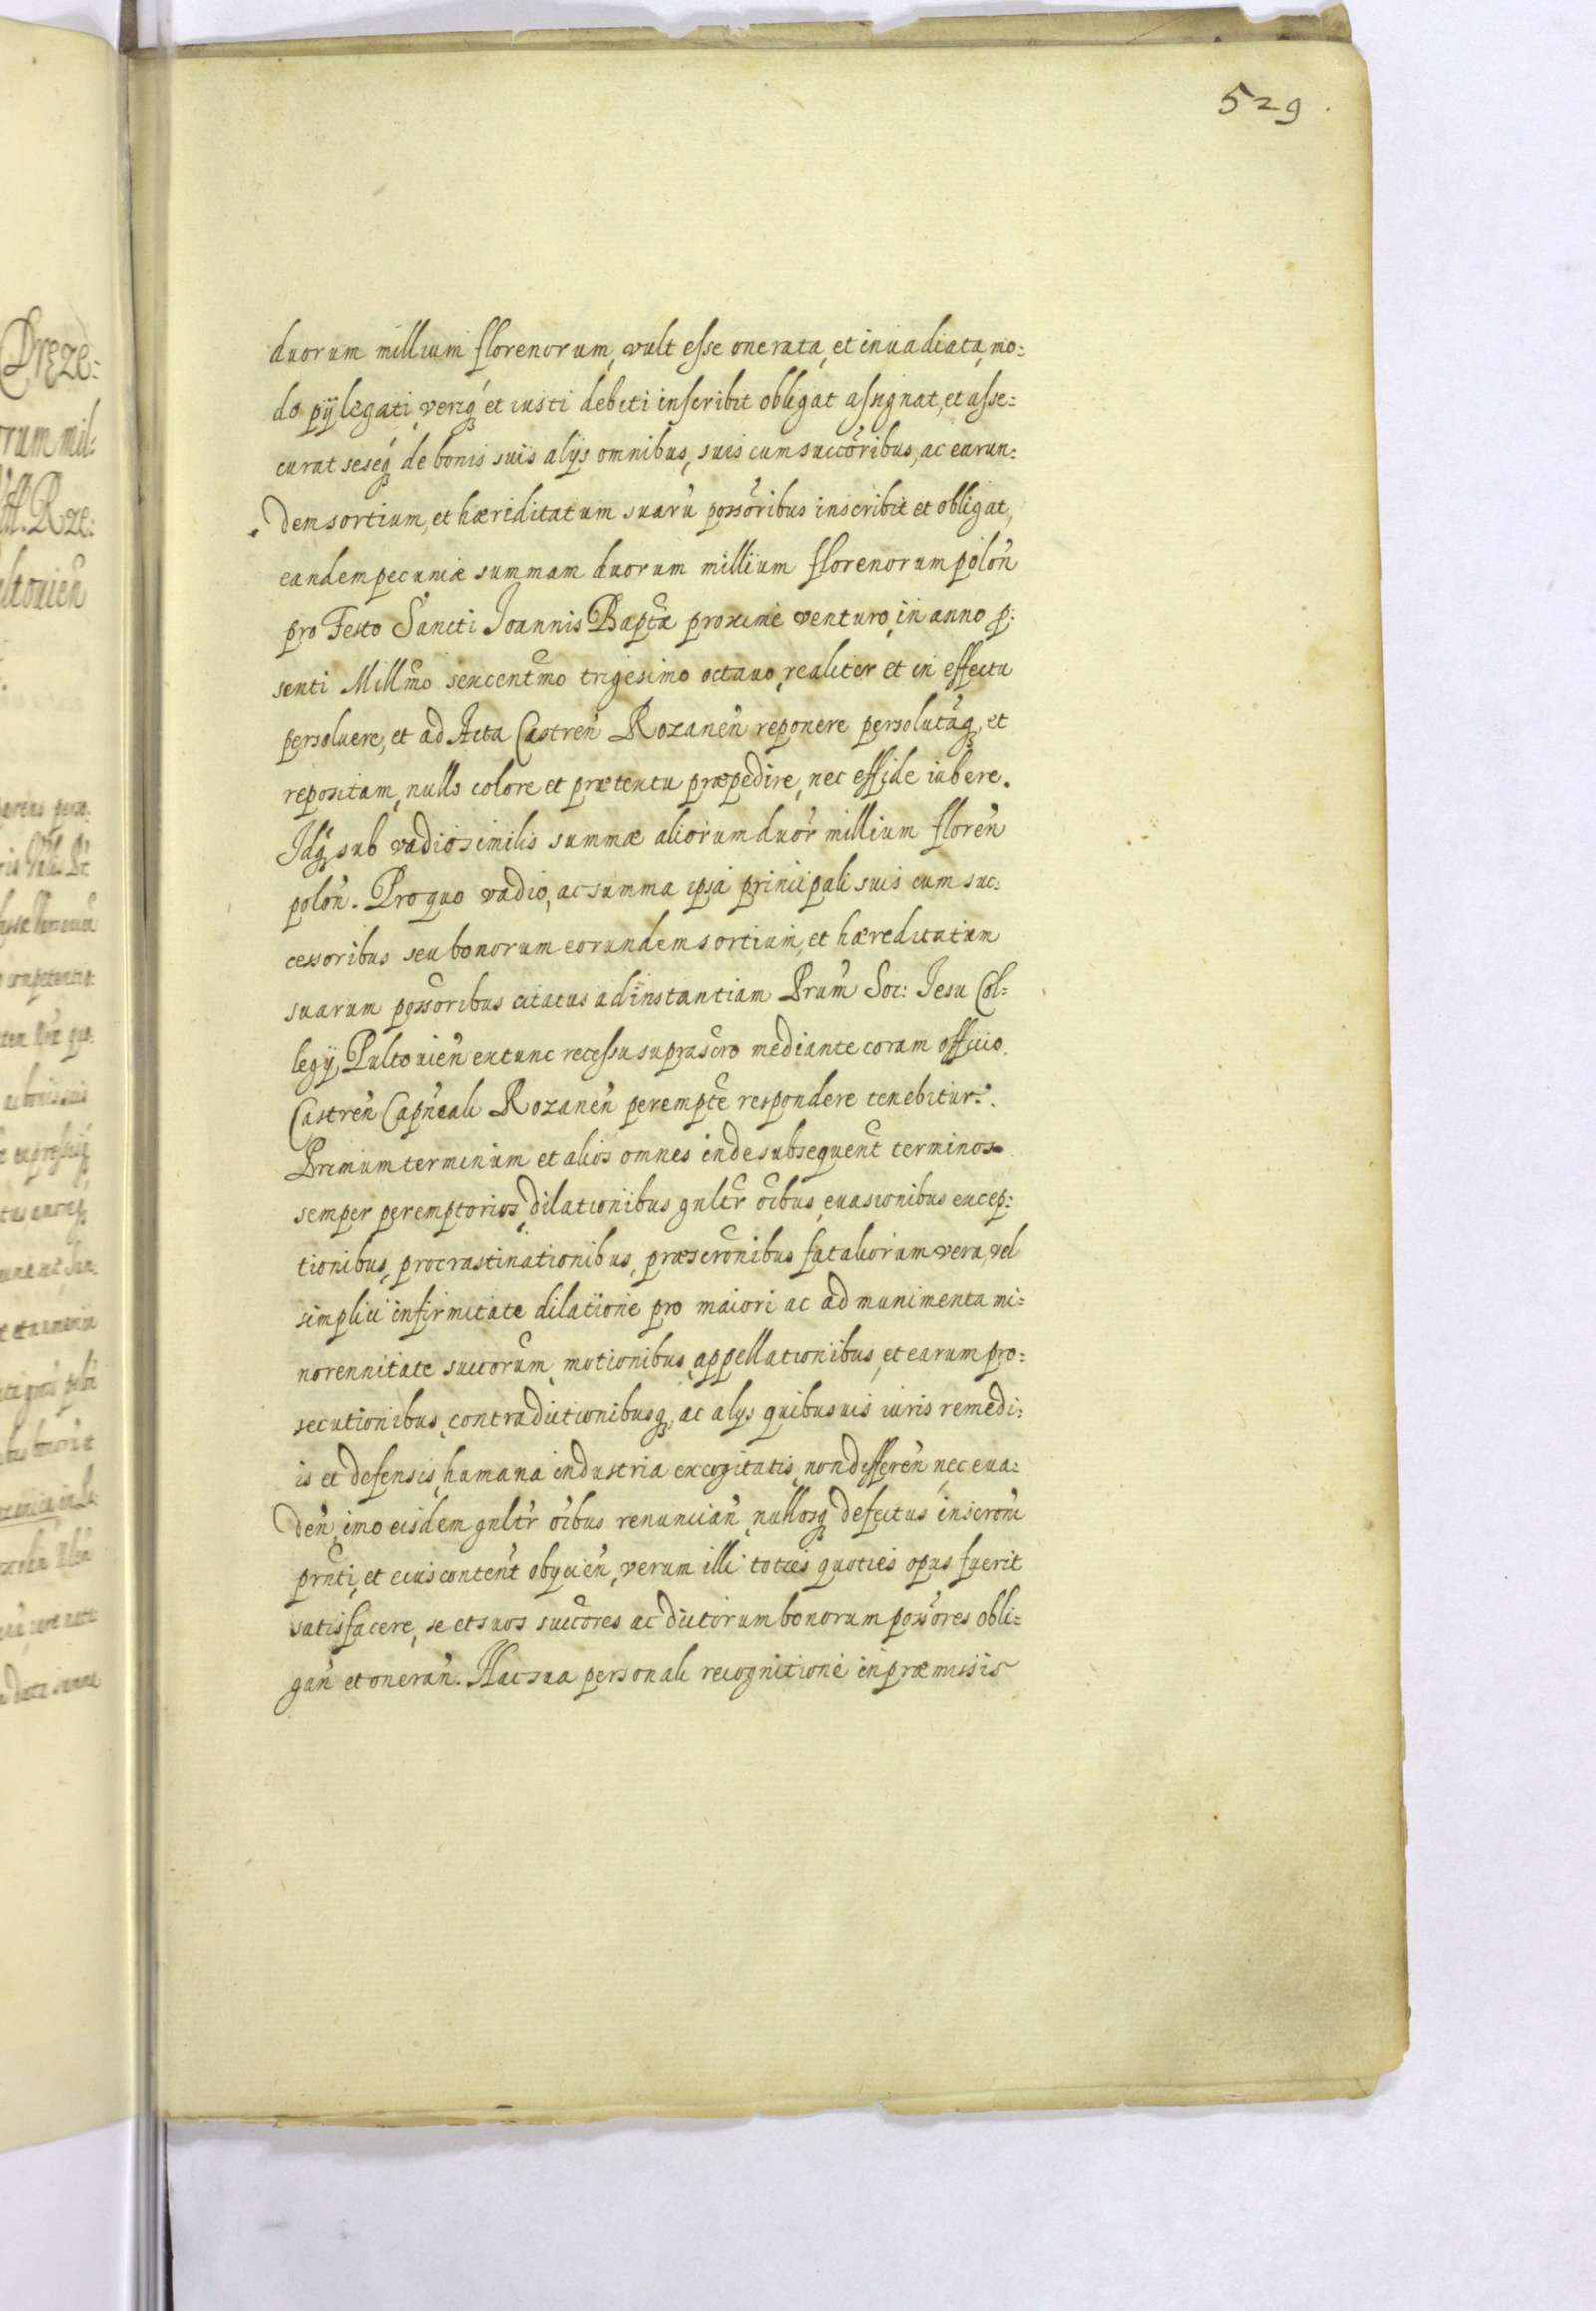 529
duorum millium florenorum, vult esse onerata, et inuadiata, mo:
do pÿ legati, veriq́ et iusti debiti inscribit obligat assignat, et asse:
curat seseq́ de bonis suis alÿs omnibus, suis cum succõribus, ac earun:
dem sortium, et hæriditatum suarũ possõribus inscribit et obligat,
eandem pecuniæ summam duorum millium florenorum poloñ
pro Festo Sancti Joannis Bapt̃æ proximè venturo, in anno p̱:
senti Mill̃mo sexcent̃mo trigesimo octauo, realiter et in effectu
persoluere, et ad Acta Castreñ Rozaneñ reponere persolutãq, et
repositam, nullo colore et prætextu præpedire, nec effide iubere.
Idq́ sub vadio similis summæ aliorum duor̃ millium floreñ
poloñ. Pro quo vadio, ac summa ipsa principali suis cum suc:
cessoribus seu bonorum eorundem sortium, et hæreditatum
suarum possoribus citatus ad instantiam Prum̃ Soc: Jesu Col:
legÿ Pultouieñ extunc recessu suprascr̃o mediante coram officio
Castreñ Capñeali Rozaneñ perempt̃e respondere tenebitur.
Primum terminum et alios omnes inde subsequent̃ terminos
semper peremptorios, dilationibus gnlt̃r õibus, euasionibus excep:
tionibus, procrastinationibus, præscr̃onibus fataliorum vera, vel
simplici infirmitate dilatione pro maiori ac ad munimenta mi:
norennitate succorum, motionibus, appellationibus, et earum pro:
secutionibus, contradictionibusq, ac alÿs quibusuis iuris remedi:
is et defensis, humana industria excogitatis, non differeñ, nec eua:
deñ, imo eisdem gnlt̃r õibus renunciañ, nullosq defectus inscr̃oni
prñti, et eius content̃ obÿcieñ, verum illi toties quoties opus fuerit
satisfacere, se et suos succ̃ores ac dictorum bonorum possõres obli:
gañ et onerañ. Hac sua personali recognitione in præmissis